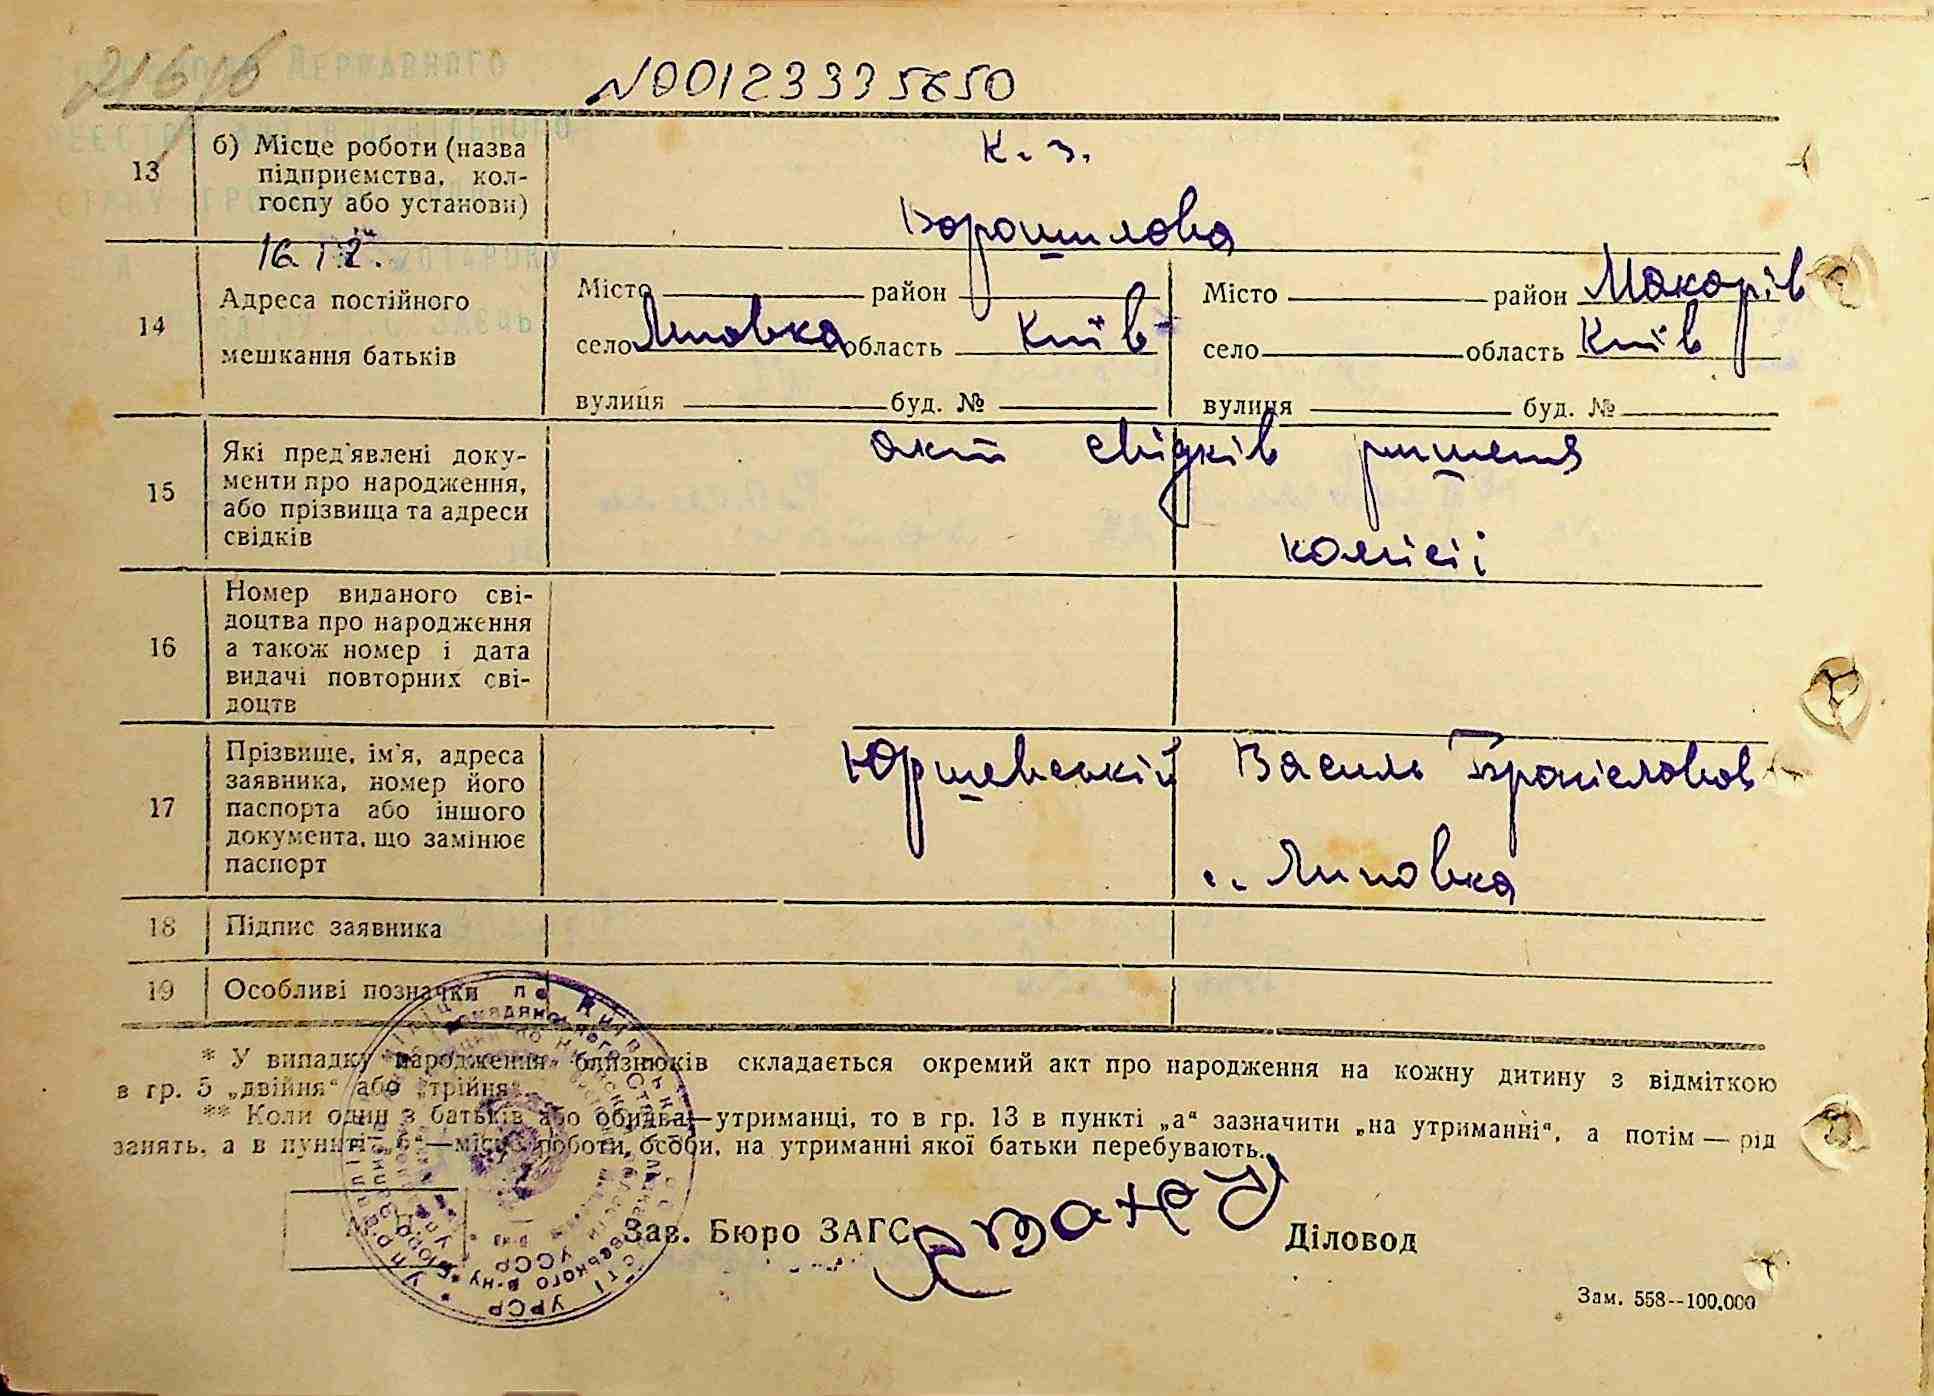 N00123335650
13 б) Місце роботи (назва
підприємства, кол-
госпу або установи)
К. з.
Ворошилова
14 Адреса постійного
мешкання батьків
Місто район
село Липовка область Київ
вулиця буд. №
Місто район Макарів
село область Київ
вулиця буд. №
15 Які пред'явлені доку-
менти про народження,
або прізвища та адреси
свідків
акт свідків ришення
комісії
16 Номер виданого сві-
доцтва про народження
а також номер і дата
видачі повторних сві-
доцтв
17 Прізвище, ім'я, адреса
заявника, номер його
паспорта або іншого
документа, що замінює
паспорт
Юршевський Василь Броніславов
Липовка
18 Підпис заявника
19 Особливі позначки
* У випадку народження близнюків складається окремий акт про народження на кожну дитину з відміткою
в гр. 5 „двійня“ або „трійня“
** Коли один з батьків або обидва—утриманці, то в гр. 13 в пункті „а“ зазначити „на утриманні“, а потім — рід
занять, а в пункті „б“—місце роботи, особи, на утриманні якої батьки перебувають.
Зав. Бюро ЗАГС Діловод
УРСР
УССР
Зам. 558--100.000